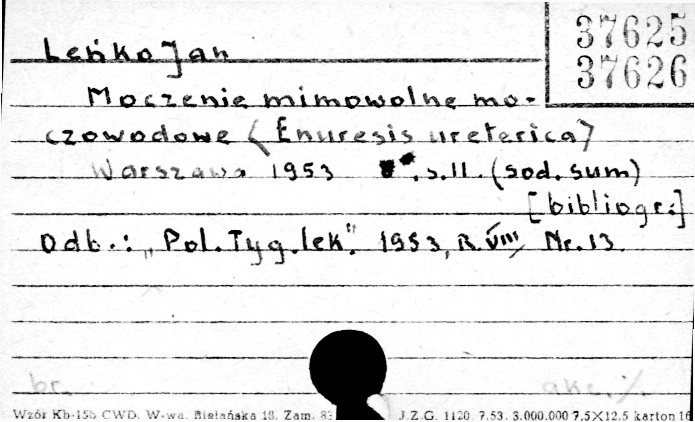 37625
37626
Leńko Jan
Moczenie mimowolne mo-
czowodowe (Enuresis ureterica)
Warszawa 1953 . s.11. (sod. sum)
[bibliogr.]
Odb.: „Pol. Tyg. lek." 1953, R. VIII, Nr. 13.
br. akc. %
Wzór Kb-15b CWD. W-wa, Bielańska 18. Zam. 83 J.Z.G. 1120. 7.53. 3.000.000 7,5×12,5 karton 16